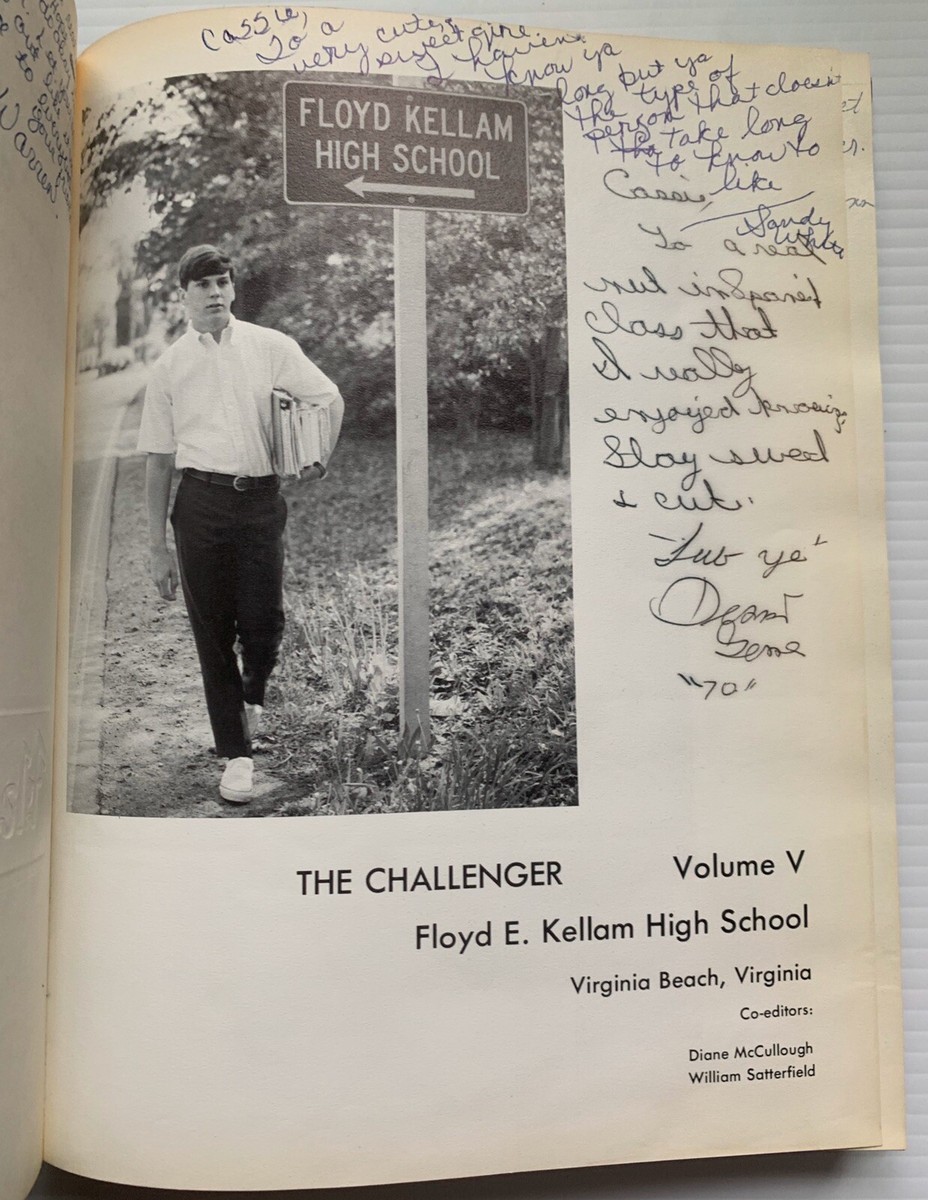 Cassie,
To a
very cute &
sweet girl.
I haven't
know ya
long but ya
the type of
person that doesn't
take long
to know to
like
Sandy
White
FLOYD KELLAM
HIGH SCHOOL
Cassie,
To a real
nut in Spanish
Class that
I really
enjoyed knowing
Stay sweet
& cute.
"Luv ya"
"70"
Warren
THE CHALLENGER
Volume V
Floyd E. Kellam High School
Virginia Beach, Virginia
Co-editors:
Diane McCullough
William Satterfield